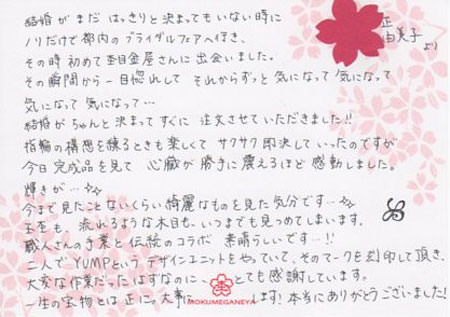 結婚がまだはっきりと決まってもいない時に
ノリだけで都内のブライダルフェアへ行き、
その時初めて杢目金屋さんに出会いました。
その瞬間から一目惚れして それからずっと気になって気になって
気になって気になって…
結婚がちゃんと決まってすぐに注文させていただきました!!
指輪の構想を練るときも楽しくてサクサク即決していったのですが
今日完成品を見て 心臓が勝手に震えるほど感動しました。
輝きが…
今まで見たことないくらい綺麗なものを見た気分です…
玉も、流れるような木目も、いつまでも見つめてしまいます。
職人さんの手業と伝統のコラボ 素晴らしいです…!!
二人でYUMPというデザインユニットをやっていて、そのマークを刻印して頂き、
大変な作業だったはずなのに… とても感謝しています。
一生の宝物とは正に。大事に します!本当にありがとうございました!
正
由美子より
MOKUMEGANEYA